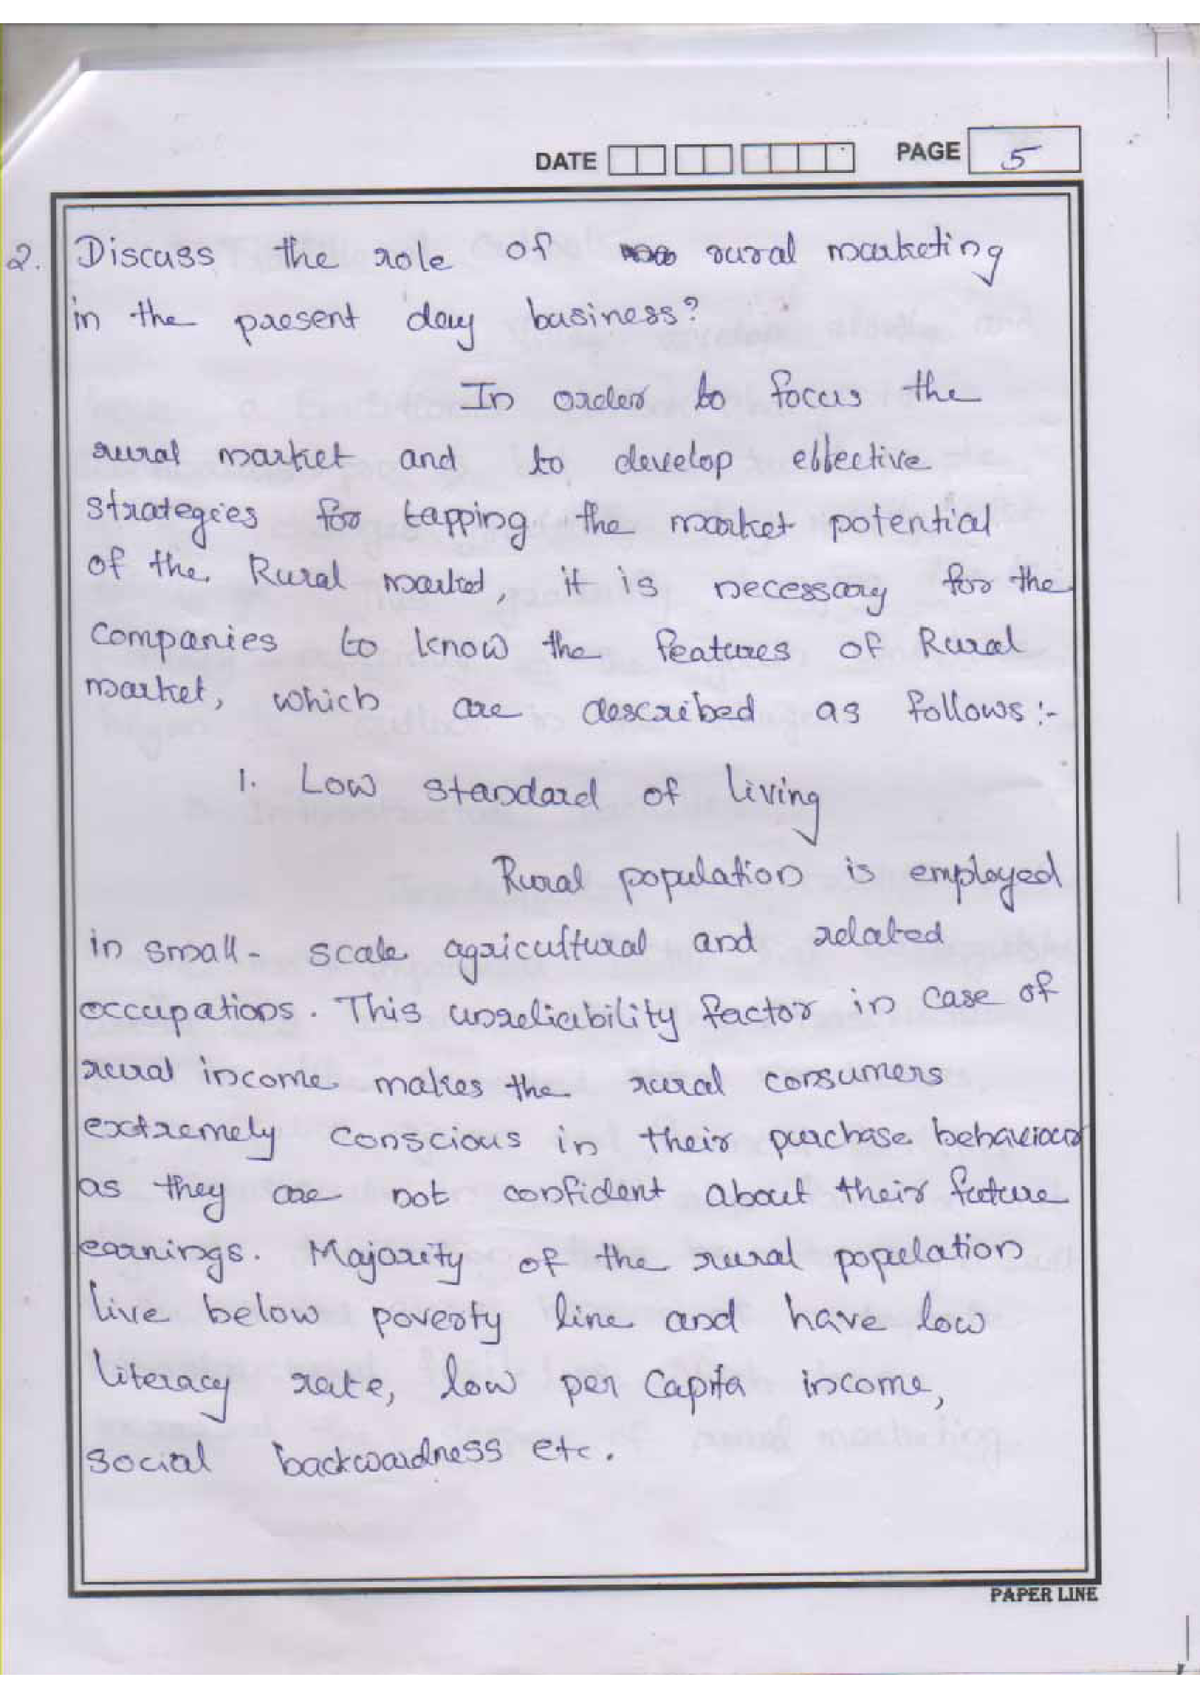 DATE PAGE 5
2. Discuss the role of rural marketing
in the present day business?
In order to focus the
rural market and to develop effective
strategies for tapping the market potential
of the Rural market, it is necessary for the
Companies to know the features of Rural
market, which are described as follows:-
1. Low standard of living
Rural population is employed
in small-scale agricultural and related
occupations. This unreliability factor in case of
rural income makes the rural consumers
extremely conscious in their purchase behaviour
as they are not confident about their future
earnings. Majority of the rural population
live below poverty line and have low
literacy rate, low per capita income,
social backwardness etc.
PAPER LINE